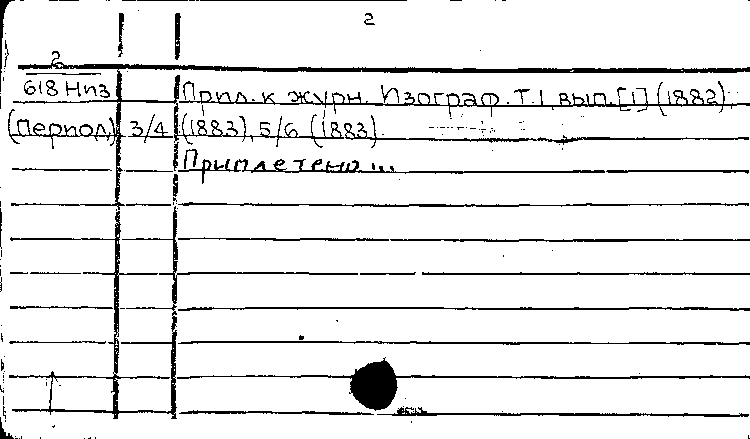 2
2
618 Низ
Прил. к журн. Изограф. Т.1, вып. [1] (1882),
(период) 3/4 (1883), 5/6 (1883).
Приплетено...